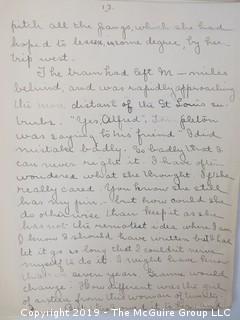 12.
pitch all the gaugs, which she had
hoped to lessen, some degree, by her
trip west.
The train had left M— miles
behind, and was rapidly approaching
the most distant of the St Louis su-
burbs. "Yes, Alfred",
was saying to his friend "I did
mistake badly. So badly that I
can never right it. I have often
wondered what she thought. If she
really cared. You know she still
has my pin, but how could she
do otherwise than keep it as she
has not the remotest idea where I am
I know I should have written but I had
let it go so long that I couldn't
myself to do it. I might have known
that seven years. Game would
change. How different was the girl
of sixteen from the woman of twenty
Copyright 2019 - The McGuire Group LLC